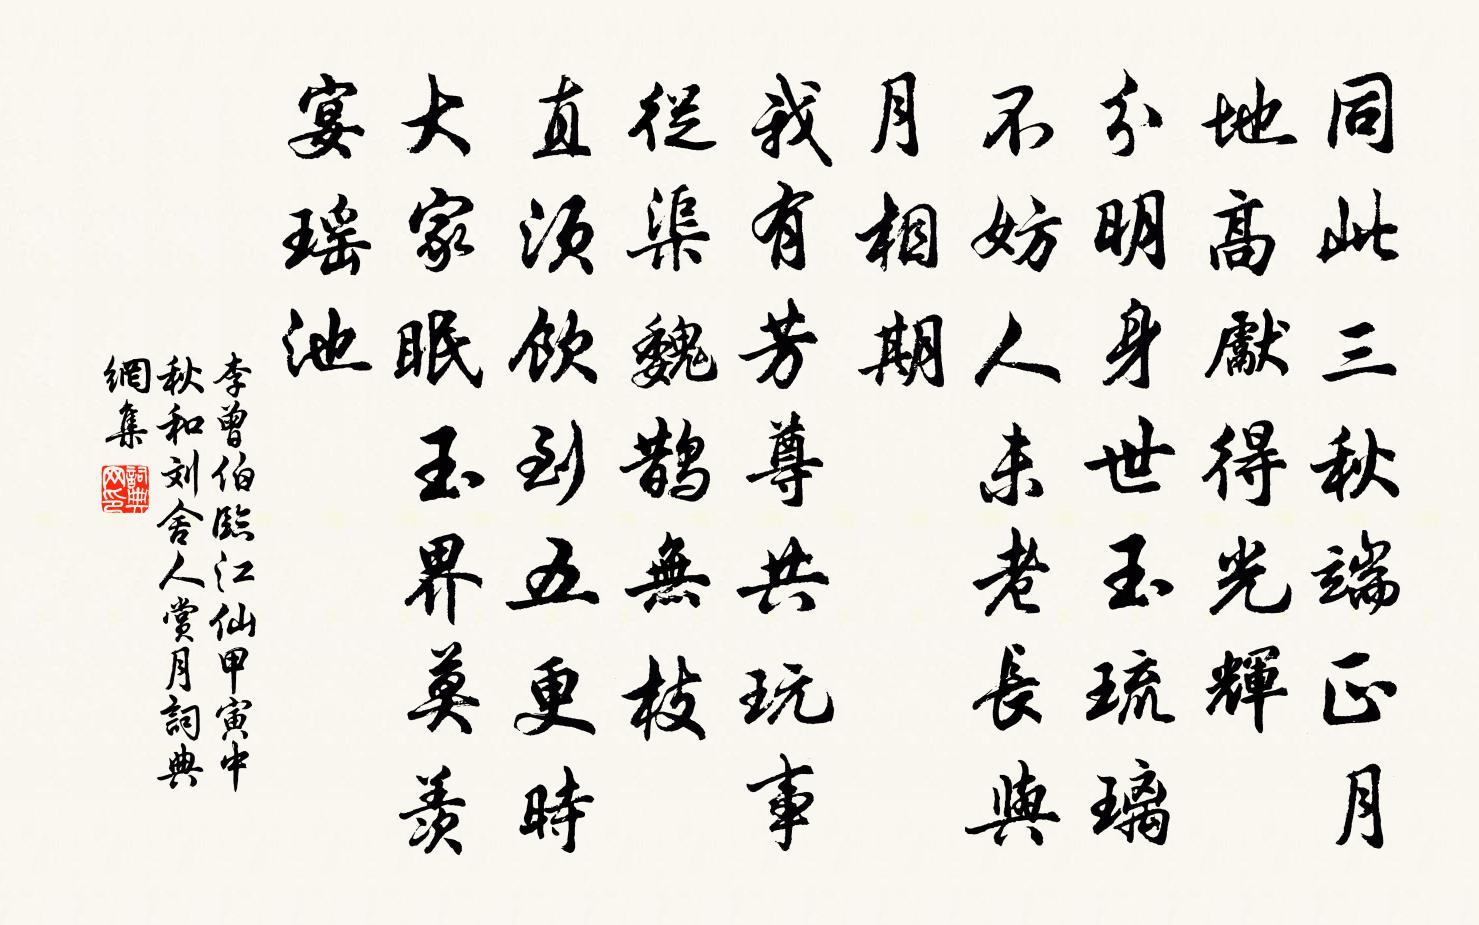 同此三秋端正月
地高獻得光輝
分明身世玉琉璃
不妨人未老長與
月相期
我有芳尊共玩事
從渠魏鵲無枝
直須飲到五更時
大家眠玉界莫羨
宴瑶池
李曾伯臨江仙甲寅中
秋和刘舍人賞月詞典
網集
詞典